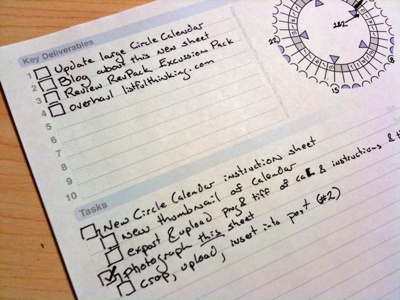 Key Deliverables
1 Update large Circle Calendar
2 Blog about this new sheet
3 Review RevPack Excussion Pack
4 overhaul listfulthinking.com
5
6
7
8
9
10
Tasks
New Circle Calendar instruction sheet
new thumbnail of calendar
export & upload png & tiff of cal & instructions &
photograph this sheet
crop, upload, insert into post (#2)